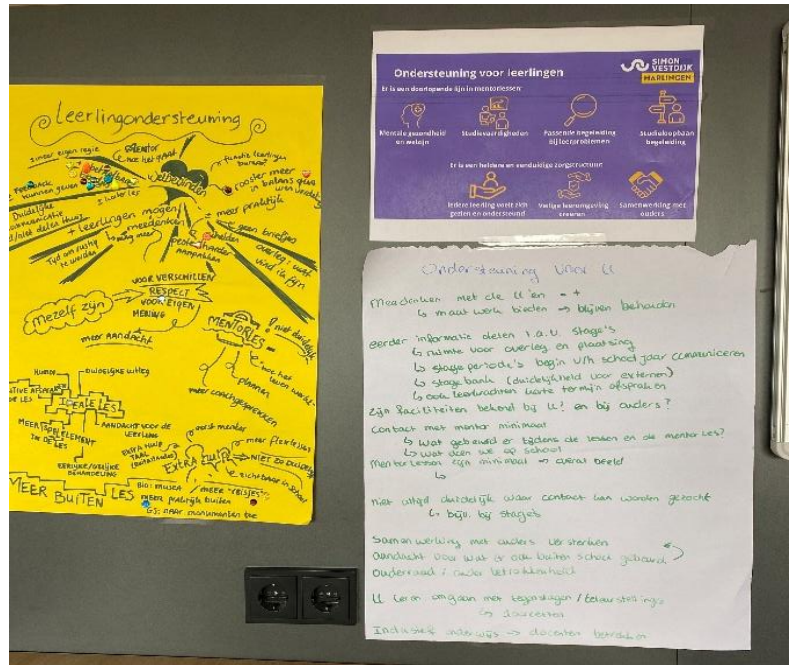 Leerlingondersteuning
MENTOR
hoe het gaat
1 uur eigen regie
Welbevinden
functie leerlingen
rooster meer
in balans qua
meer praktijk
Feedback
kunnen geven
Duidelijke
communicatie
+ leerlingen mogen
meedenken
geen briefjes
overleg: wat
vind ik fijn
helder
pesten harder
aanpakken
Tijd om rustig
te worden
VOOR VERSCHILLEN
RESPECT
VOOR EIGEN
MENING
mezelf zijn
meer AANDACHT
MENTORLES
niet duidelijk
hoe het
leven werkt
plannen
meer coachgesprekken
HUMOR
DUIDELIJKE UITLEG
IDEALE LES
AANDACHT VOOR DE
LEERLING
MEER SPELELEMENT
IN DE LES
EERLIJKE/GELIJKE
BEHANDELING
EXTRA HULP
TAAL
EXTRA HULP
meer flexlessen
NIET ZO DUIDELIJK
zichtbaar in school
MEER BUITEN LES
Bio: musea
meer "REISJES"
meer praktijk buiten
GS: naar monumenten toe
Ondersteuning voor leerlingen
SIMON
VESTDIJK
HARLINGEN
Er is een doorlopende lijn in mentorlessen:
Mentale gezondheid
en welzijn
Studievaardigheden
Passende begeleiding
bij leerproblemen
Studieloopbaan
begeleiding
Er is een heldere en eenduidige zorgstructuur:
Iedere leerling voelt zich
gezien en ondersteund
Veilige leeromgeving
creëren
Samenwerking met
ouders
Ondersteuning voor ll
Meedenken met de ll'en - +
↳ maatwerk bieden → blijven behouden
eerder informatie delen t.a.v. stage's
↳ ruimte voor overleg en plaatsing
↳ stageperiode's begin v/h schooljaar communiceren
↳ stagebank (duidelijkheid voor externen)
↳ ook leerkrachten korte termijn afspraken
Zijn faciliteiten bekend bij ll? en bij ouders?
Contact met mentor minimaal
↳ wat gebeurd er tijdens de lessen en de mentorles?
↳ wat doen we op school
Mentorlessen zijn minimaal → overal beeld
↳
niet altijd duidelijk waar contact kan worden gezocht
↳ bijv. bij stage's
Samenwerking met ouders versterken
aandacht voor wat er ook buiten school gebeurd
Ouderraad: ouder betrokkenheid
ll leren omgaan met tegenslagen / teleurstellings
↳ docenten
Inclusief onderwijs → docenten betrekken